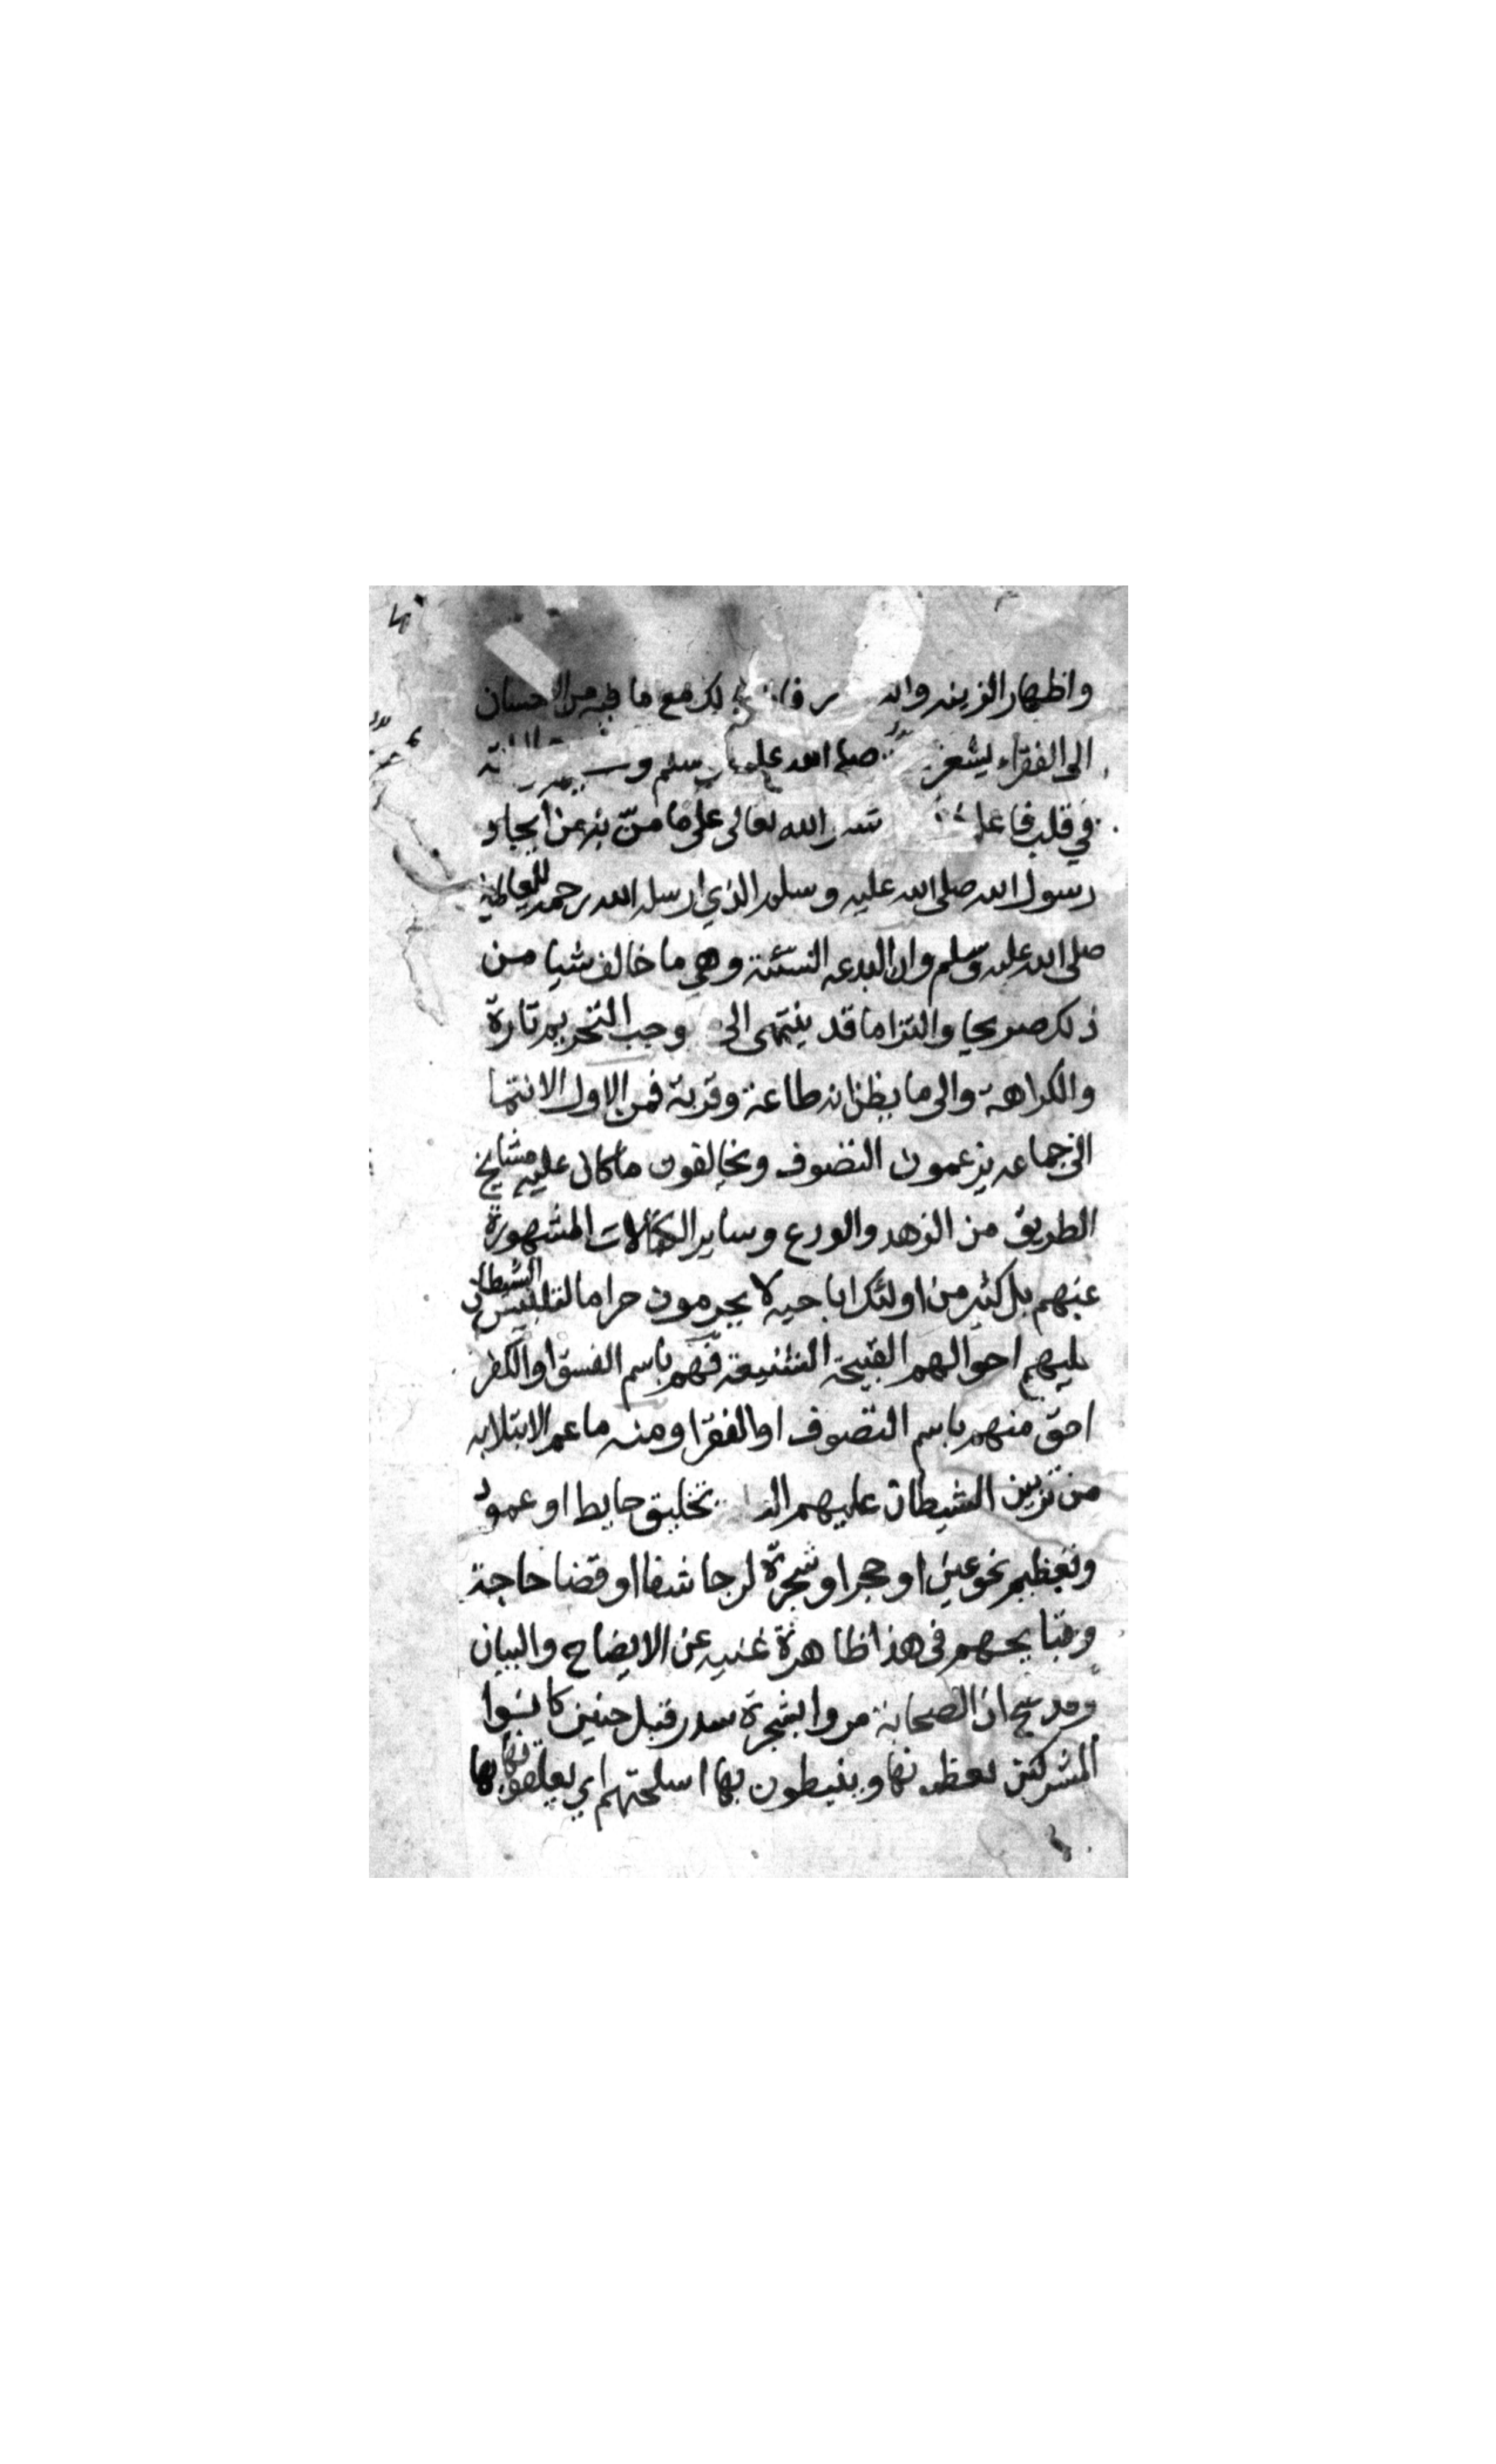 واظهار الزينه فان ذلك مع ما فيه من الاحسان
الى الفقراء يشعر صلى الله عليه وسلم
في قلب فاعل الله تعالى على ما منّ به من ايجاد
رسول الله صلى الله عليه وسلم الذي ارسله الله رحمة للعالمين
صلى الله عليه وسلم وان البدعه السيئة وهي ما خالف شيا من
ذلك صريحا والتزاما قد ينتهى الى وجب التحريم تارة
والكراهة والى ما يظن انه طاعة وقربة فمن الاول الانتما
الى جماعه يزعمون التصوف ويخالفون ما كان عليه مشايخ
الطريق من الزهد والورع وساير الكمالات المشهورة
عنهم بل كثير من اولئك اباحيه لا يحرمون حراما لتلبيس الشيطان
عليهم احوالهم القبيحة الشنيعة فهم باسم الفسق او الكفر
احق منهم باسم التصوف او الفقر ومنه ما عم الابتلا به
من تزيين الشيطان عليهم تخليق حايط او عمود
وتعظيم نحو عين او حجر او شجرة لرجا شفا او قضا حاجة
وقبايحهم في هذا ظاهرة غنيه عن الايضاح والبيان
وقد صح ان الصحابة مروا بشجرة سدر قبل حنين كانوا
المشركين يعظمونها وينيطون بها اسلحتهم اي يعلقونها بها